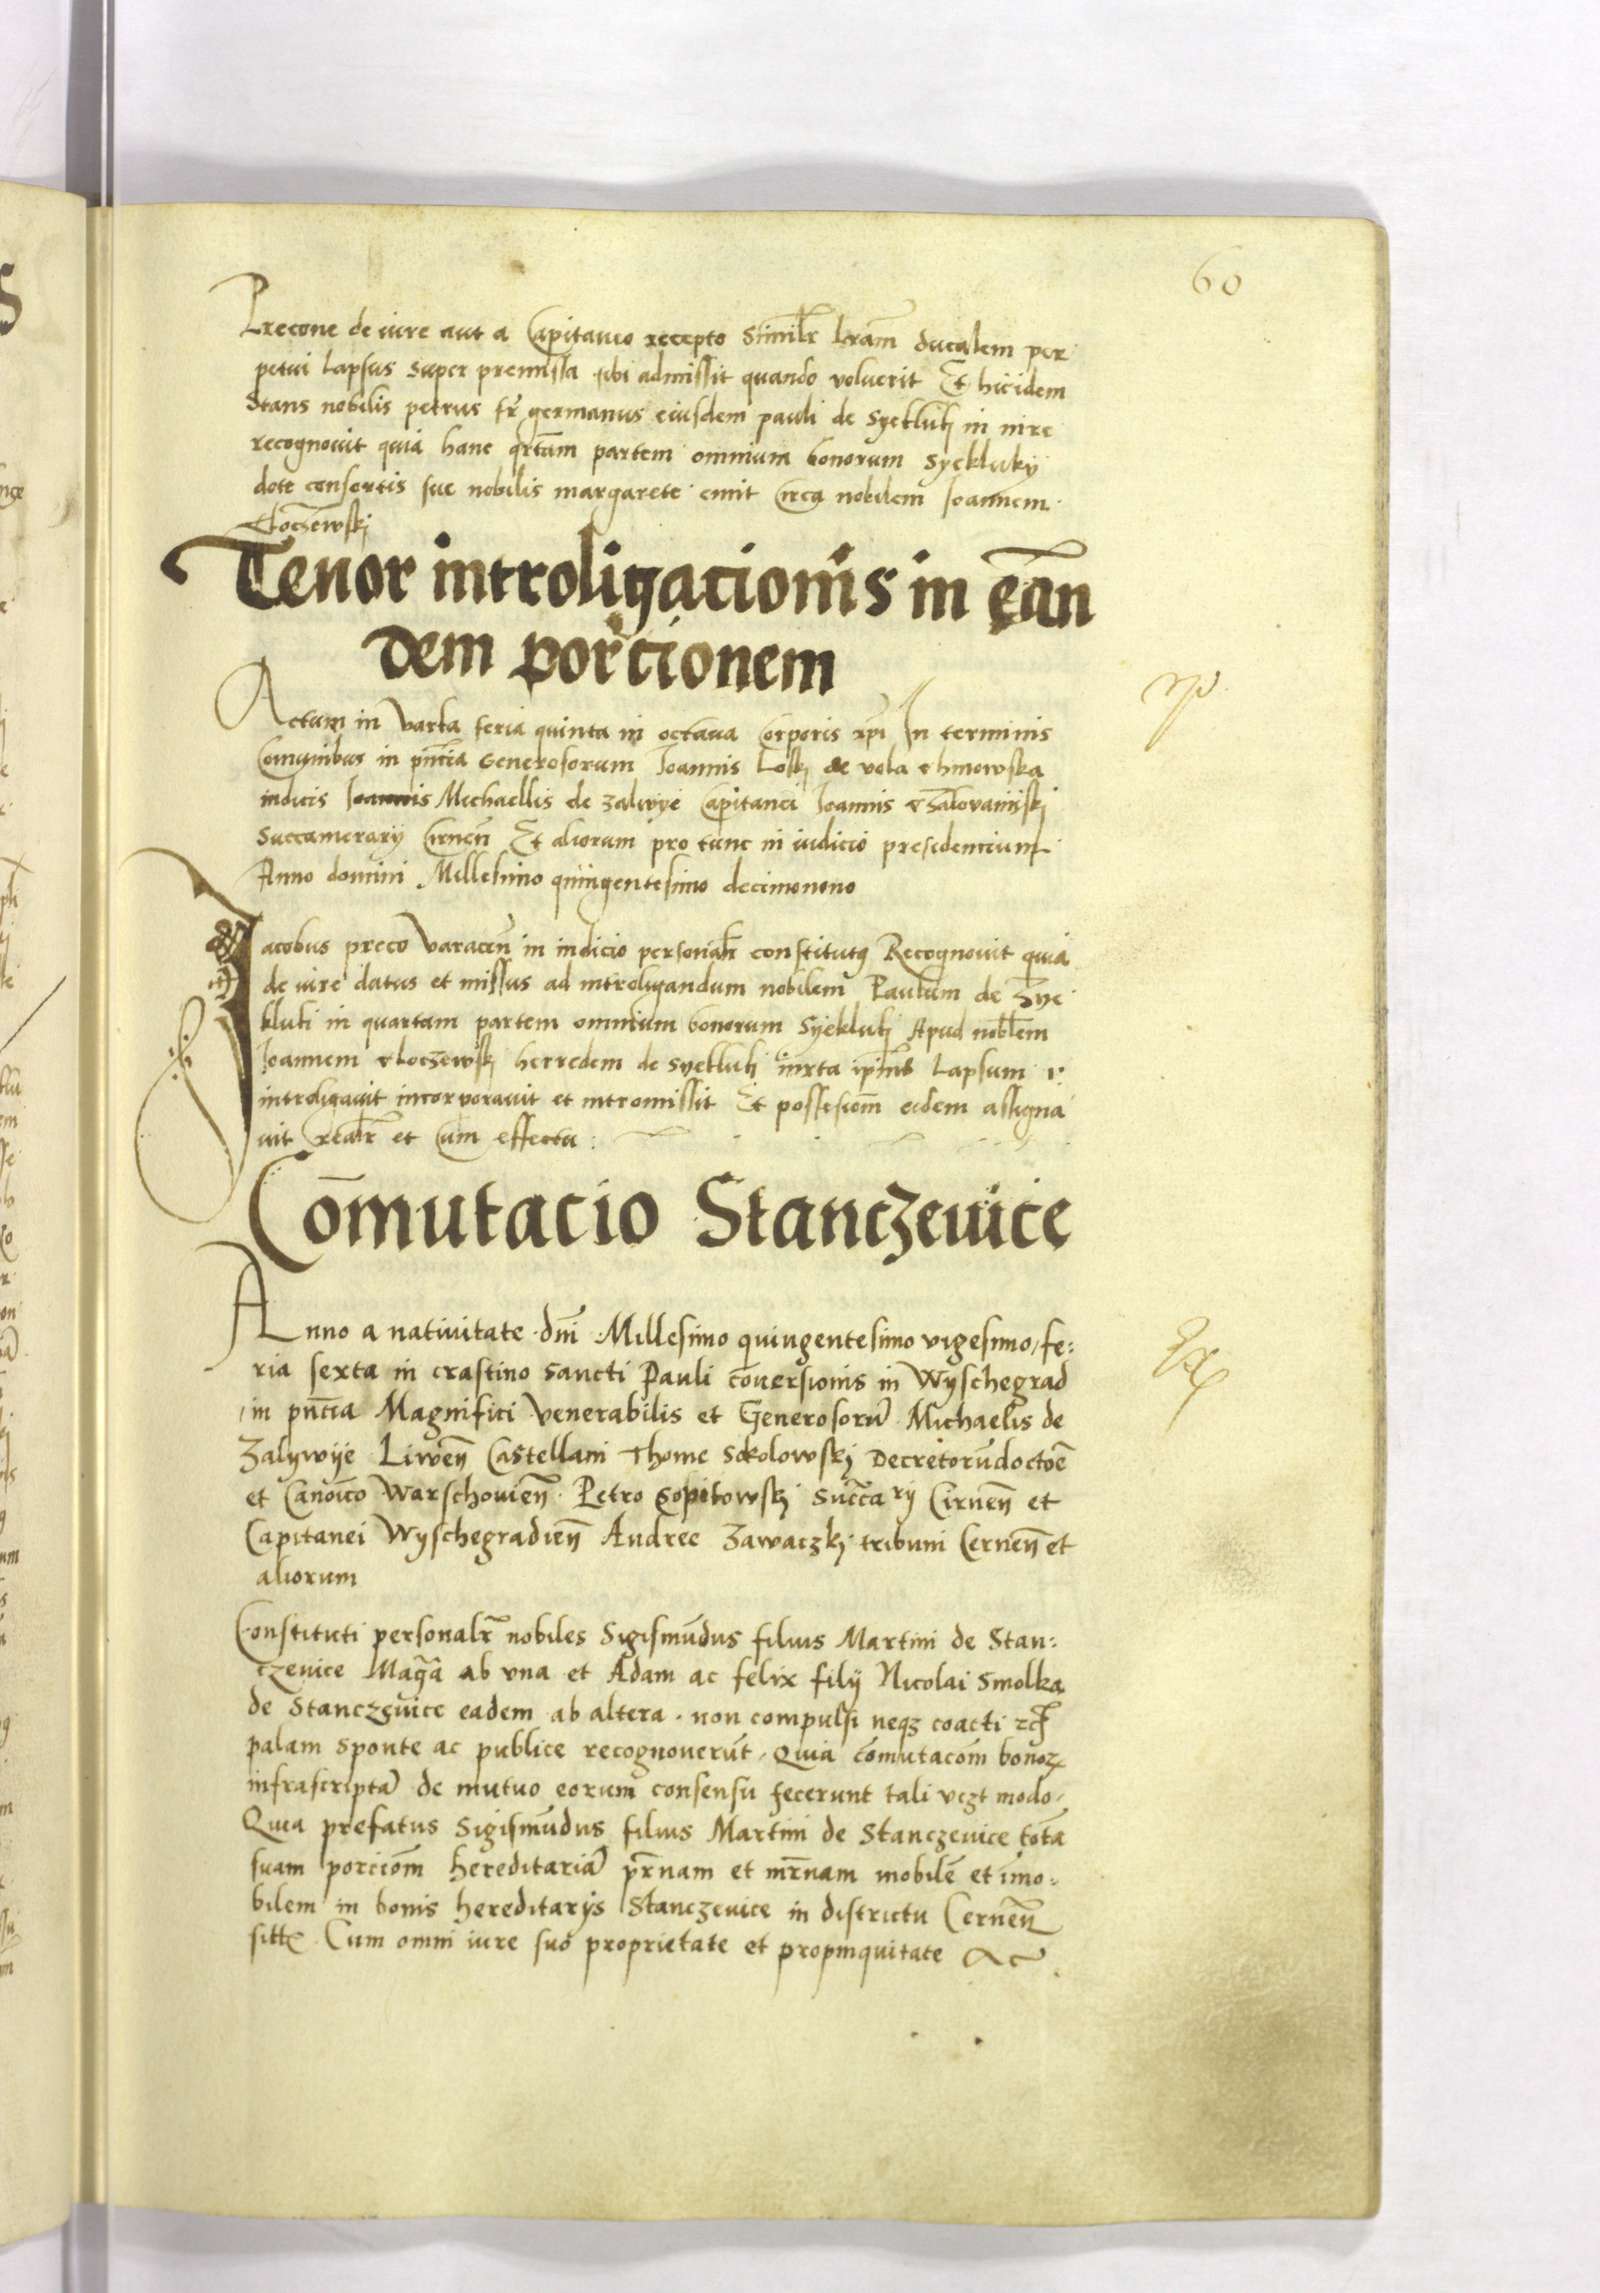 60
Precone de iure aut a Capitaneo recepto Similr lram ducalem per
petui lapsus super premissa sibi admissit quando voluerit Et hicidem
Stans nobilis petrus fr germanus eiusdem pauli de Syekluki in iure
recognovit quia hanc qrtam partem omnium bonorum Syekluky
dote consortis sue nobilis margarete emit circa nobilem Joannem
Tloczewskj
Tenor introligacionis in ean
dem porcionem
Actum in Varka feria quinta in octava Corporis xpi In terminis
Comunibus in pntia Generosorum Joannis Loskj de vola
iudicis Michaellis de Zalwye Capitanei Joannis
Succamerarij Cirnen Et aliorum pro tunc in iudicio presidencium
Anno domini Millesimo quingentesimo decimonono
Jacobus preco Varacen in iudicio personalr constitutus Recognovit quia
de iure datus et missus ad introligandum nobilem Paulum de Sye
kluki in quartam partem omnium bonorum Syeklukj Apud nobilem
Joannem tloczewskj herredem de Syeklukj iuxta ipius Lapsum
introligavit incorporavit et intromissit Et possessiom eidem assigna
vit realr et cum effectu
Comutacio Stanczevice
Anno a nativitate dni Millesimo quingentesimo vigesimo, fe:
ria sexta in crastino sancti Pauli conversionis in Wyschegrad
in pntia Magnifici Venerabilis et Generosoru Michaelis de
Zalywye Liwen Castellani Thome Sokolowskj Decretorudoctore
et Canoico Warschovien Petro Sopikowskj Succarij Cirnen et
Capitanei Wyschegradien Andree Zawaczkj tribuni Cernen et
aliorum
Constituti personalr nobiles Sigismudus filius Martini de Stan:
czevice Maga ab una et Adam ac felix filij Nicolai Smolka
de Stanczevice eadem ab altera non compulsi neqz coacti
palam sponte ac publice recognoverut, Quia comutacom bonoz
infrascripta de mutuo eorum consensu fecerunt tali vczt modo
Quia prefatus Sigismudus filius Martini de Stanczevice tota
suam porciom hereditaria prnam et mrnam mobile et imo:
bilem in bonis hereditarijs Stanczevice in districtu Cernen
sitt Cum omni iure suo proprietate et propinquitate Ac